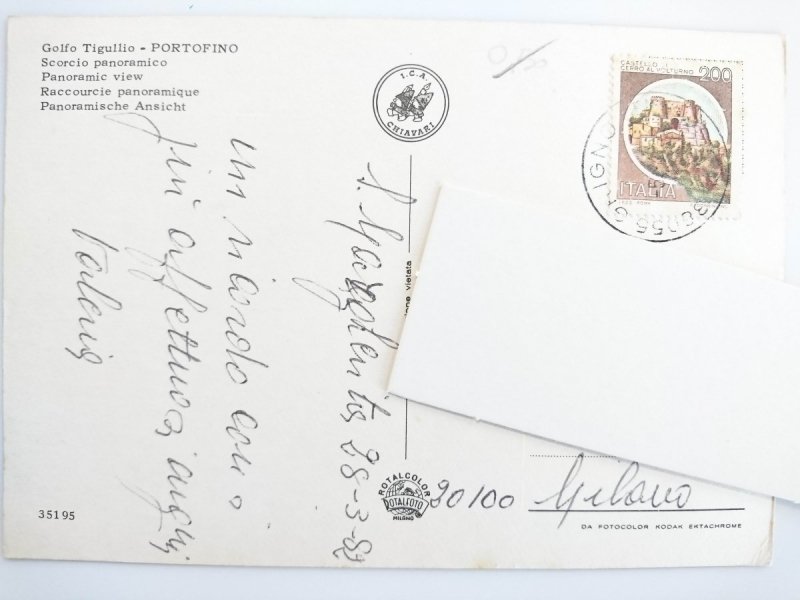 Golfo Tigullio - PORTOFINO
Scorcio panoramico
Panoramic view
Raccourcie panoramique
Panoramische Ansicht
I.C.A.
CHIAVARI
CASTELLO DI
CERRO AL VOLTURNO 200
ITALIA
S. Margherita 28-3-82
un ricordo con i
più affettuosi auguri
Valeria
vietata
ROTALCOLOR
ROTALFOTO
MILANO
20100 Milano
DA FOTOCOLOR KODAK EKTACHROME
35195